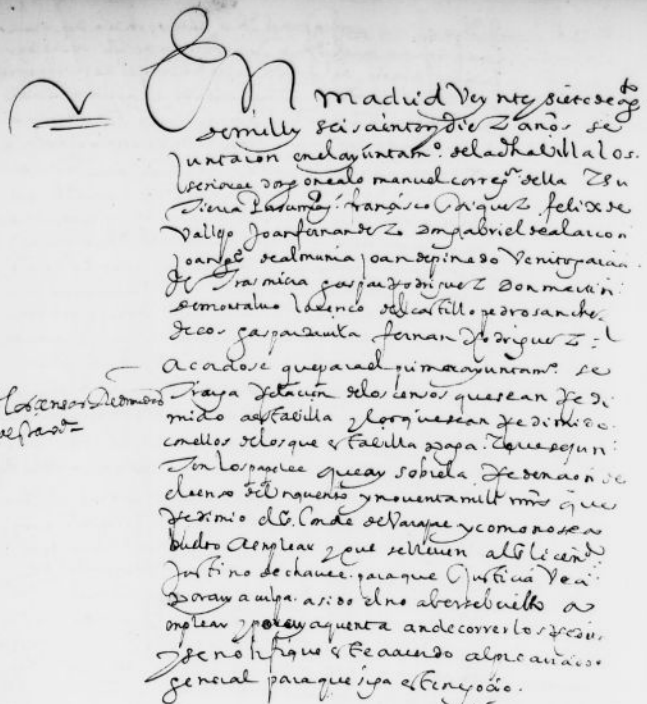 En madrid Veynte y siete de agto
de mill y seiscientos y diez años se
Juntaron en el ayuntamo. de la dha Villa los
señores don gonçalo manuel corregor della Es a
francisco Enriquez felix de
Vallejo Joan fernandez don gabriel de alarcon
Joan de almunia Joan de pinedo Venito garcia
gaspar Rodriguez Don martin
de montalvo lorenço del castillo pedro sanchez
de cos gaspar fernan Rodriguez
Acordose que para el primer ayuntamo. se
Trayga Relacion de los censos que sean Redi
mido a esta billa y los que sean Redimido
con ellos de los que esta billa paga y que se
Junten los papeles que ay sobre la Redencion de
el censo de nquento y noventa mill mrs que
Redimio el Conde de Varajas y como no se a
buelto a enplear y que se lleven al licendo
Justino de chaves para que Justicia Vea
por cuya culpa a sido el no aberse buelto a
enplear y por cuya quenta an de correr los
y se notifique este acuerdo al procurador
general para que siga este negocio.
Los censos Redimidos